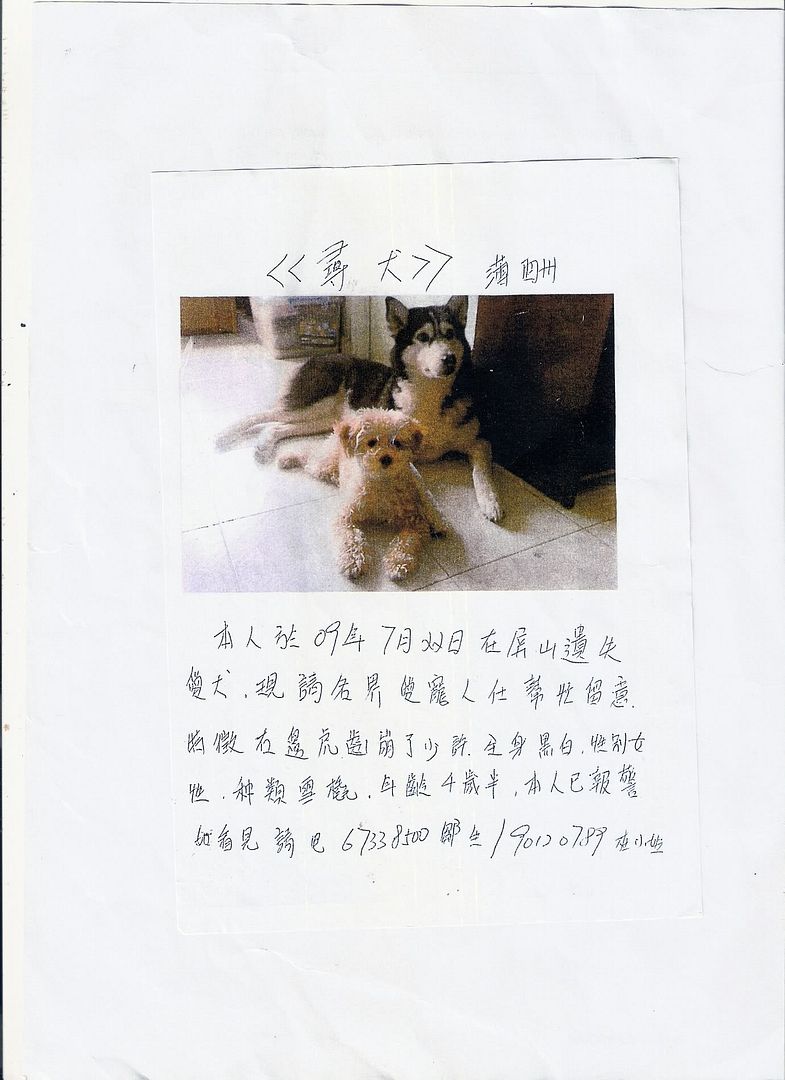 <<尋犬>>
本人於09年7月22日在屏山遺失
愛犬.現請各界愛寵人仕幫忙留意.
特徵右邊虎齒崩了少許.全身黑白.性別女
性.种類雪橇.年齡4歲半.本人已報警
如看見請电67338500鄒生/90120789 小姐